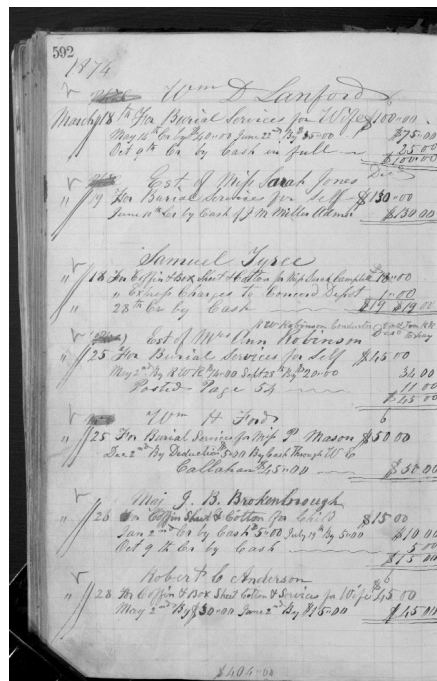 592
1874
Wm D Lanford
March 18th For Burial Services for Wife $100.00
May 16th Cr by $40.00 June 22nd By $35.00 $75.00
Oct 9th Cr by Cash in full 25.00
$100.00
Est. of Miss Sarah Jones Dec
" 19 For Burial Services for Self $130.00
June 10th Cr by Cash of J M Miller Admr $130.00
Samuel Tyree
" 18 For Coffin & Box Sheet & Cotton for Miss Campbell 18.00
" Express Charges to Concord Depot 1.00
" 28th Cr by Cash $19 $19.00
R W Robinson Conductor
Est of Mrs Ann Robinson Decd
" 25 For Burial Services for Self $45.00
May 2nd By R W R $14.00 Sept 28th By $20.00 34.00
Posted Page 54 11.00
$45.00
Wm H Ford
" 25 For Burial Services for Miss P. Mason $50.00
Dec 2nd By Deduction 5.00 By Cash Through W C
Callahan $45.00 $50.00
Maj J. B. Brokenborough
" 26 For Coffin Sheet & Cotton for Child $15.00
Jan 2nd Cr by Cash 5.00 July 19th By 5.00 $10.00
Oct 9th Cr by Cash 5.00
$15.00
Robert C Anderson
" 28 For Coffin & Box Sheet Cotton & Services for Wife $45.00
May 2nd By $30.00 June 2nd By $15.00 $45.00
$404.00